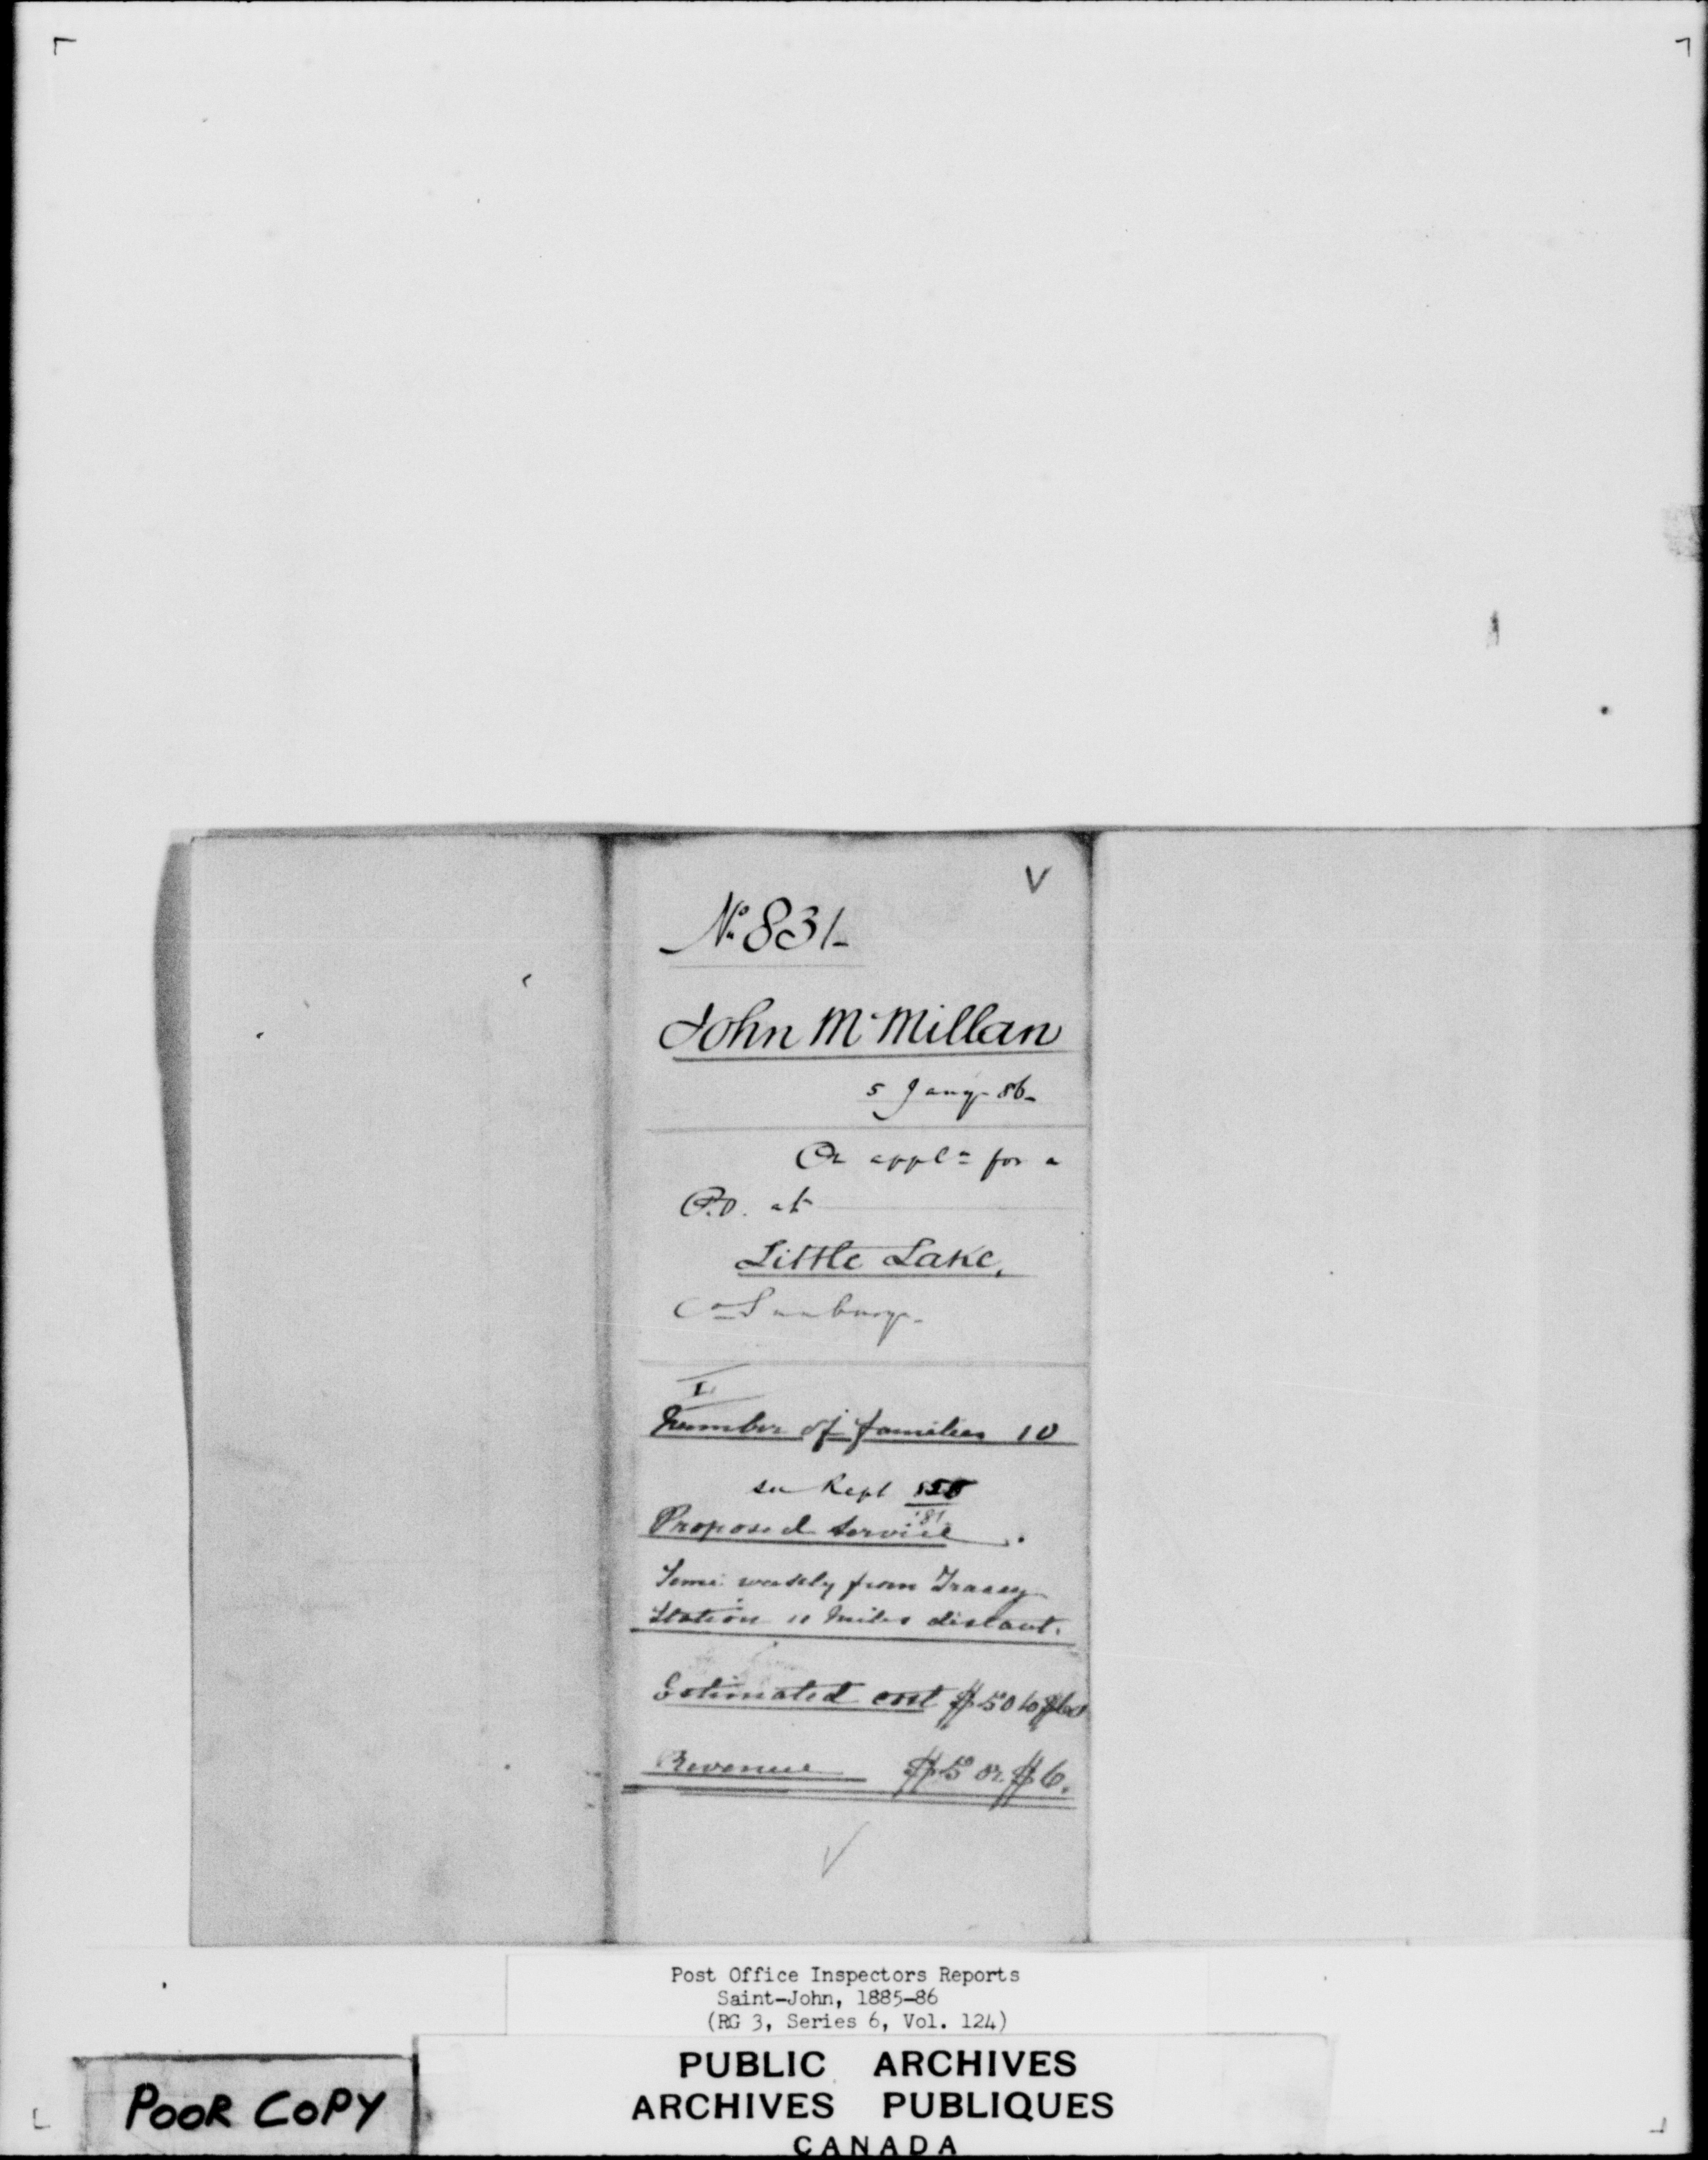 V
No. 831-
John McMillan
5 Jany - 86-
On appln for a
P.O. at
Little Lake,
Co Sunbury.
I
Number of families 10
see Rept
81
Proposed Service.
Semi weekly from Tracey
Station 11 Miles distant.
Estimated cost $50 to $60
Revenue $5 or $6.
Post Office Inspectors Reports
Saint-John, 1885-86
(RG 3, Series 6, Vol. 124)
PUBLIC ARCHIVES
ARCHIVES PUBLIQUES
CANADA
POOR COPY